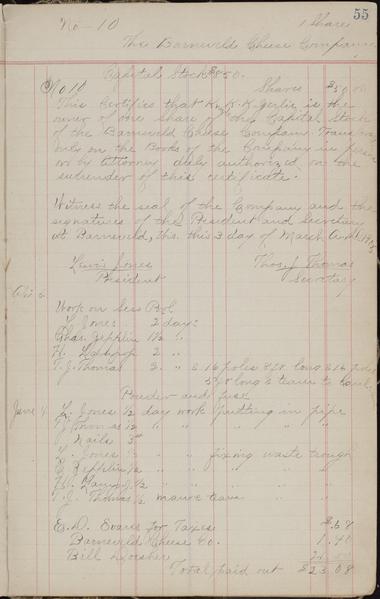 55
No 10 1 Share
The Barneveld Cheese Company
Capital Stock $850.
No 10 Shares $50.00
This Certifies that K. K. K. Gerlie is the
owner of one share of the Capital Stock
of the Barneveld Cheese Company. Transfer
only on the Books of the Company in person
or by Attorney duly authorized on the
surender of this certificate.
Witness the seal of the Company and the
signatures of the President and Secretary
at Barneveld, this 3 day of March
Lewis Jones Thos. J. Thomas
President Secretary
Work on
L. Jones 2 days
Chas. Zepplin 1½ "
H. 2 "
T. J. Thomas 2 " & 16 poles long & 16
long & team to
Powder and fuse
June 4 L. Jones ½ day work putting in pipe
T. J. Thomas ½ " " " " "
Nails
L. Jones ½ " " fixing waste trough
C. Zepplin ½ " " " " "
½ " " " " "
T. J. Thomas ½ " team
E. D. Evans for Taxes $.68
Barneveld Cheese Co. 1.40
Bill
Total paid out $23.08